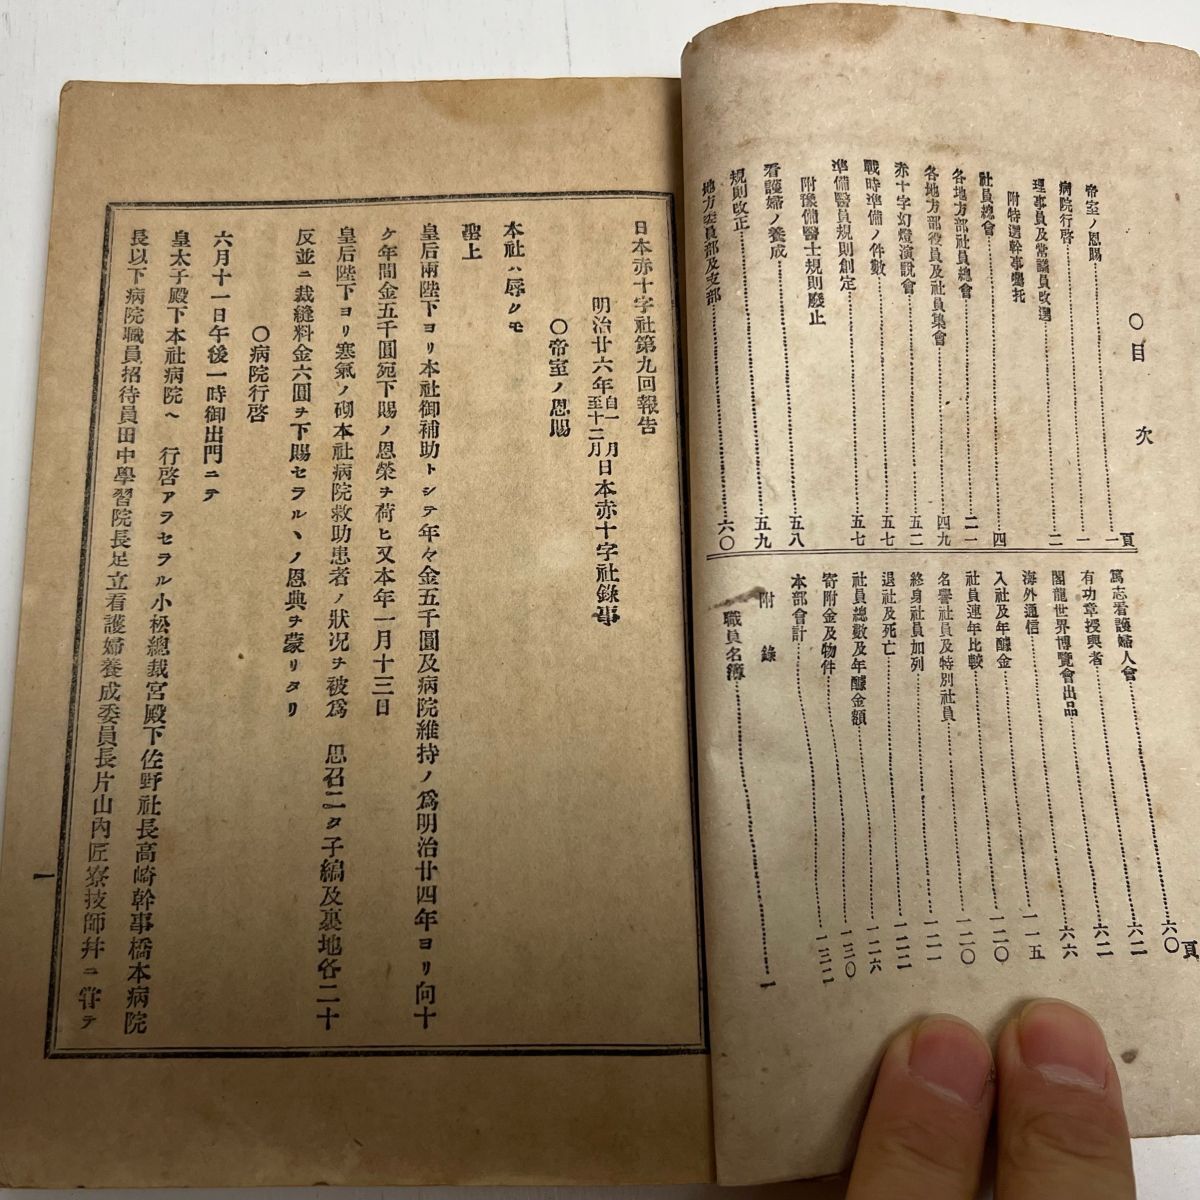 〇目次
頁
帝室ノ恩賜 一
病院行啓 一
理事員及常議員改選 二
附特選幹事囑托
社員總會 四
各地方部社員總會 二一
各地方部役員及社員集會 四九
赤十字幻燈演説會 五二
戰時準備ノ件數 五七
準備醫員規則創定 五七
附豫備醫士規則廢止
看護婦ノ養成 五八
規則改正 五九
地方委員部及支部 六〇
頁
篤志看護婦人會 六〇
有功章授與者 六二
閣龍世界博覽會出品 六二
海外通信 六六
入社及年醵金 一一五
社員連年比較 一二〇
名譽社員及特別社員 一二〇
終身社員加列 一二一
退社及死亡 一二二
社員總數及年醵金額 一二六
寄附金及物件 一三〇
本部會計 一三二
附錄
職員名簿 一
日本赤十字社第九回報告
明治廿六年自一月至十二月日本赤十字社錄事
〇帝室ノ恩賜
本社ハ辱クモ
聖上
皇后兩陛下ヨリ本社御補助トシテ年々金五千圓及病院維持ノ爲明治廿四年ヨリ向十
ケ年間金五千圓宛下賜ノ恩榮ヲ荷ヒ又本年一月十三日
皇后陛下ヨリ寒氣ノ砌本社病院救助患者ノ狀況ヲ被爲 思召ニタ子縞及裏地各二十
反並ニ裁縫料金六圓ヲ下賜セラルヽノ恩典ヲ蒙リタリ
〇病院行啓
六月十一日午後一時御出門ニテ
皇太子殿下本社病院ヘ 行啓アラセラル小松總裁宮殿下佐野社長高崎幹事橋本病院
長以下病院職員招待員田中學習院長足立看護婦養成委員長片山內匠寮技師幷ニ甞テ
一